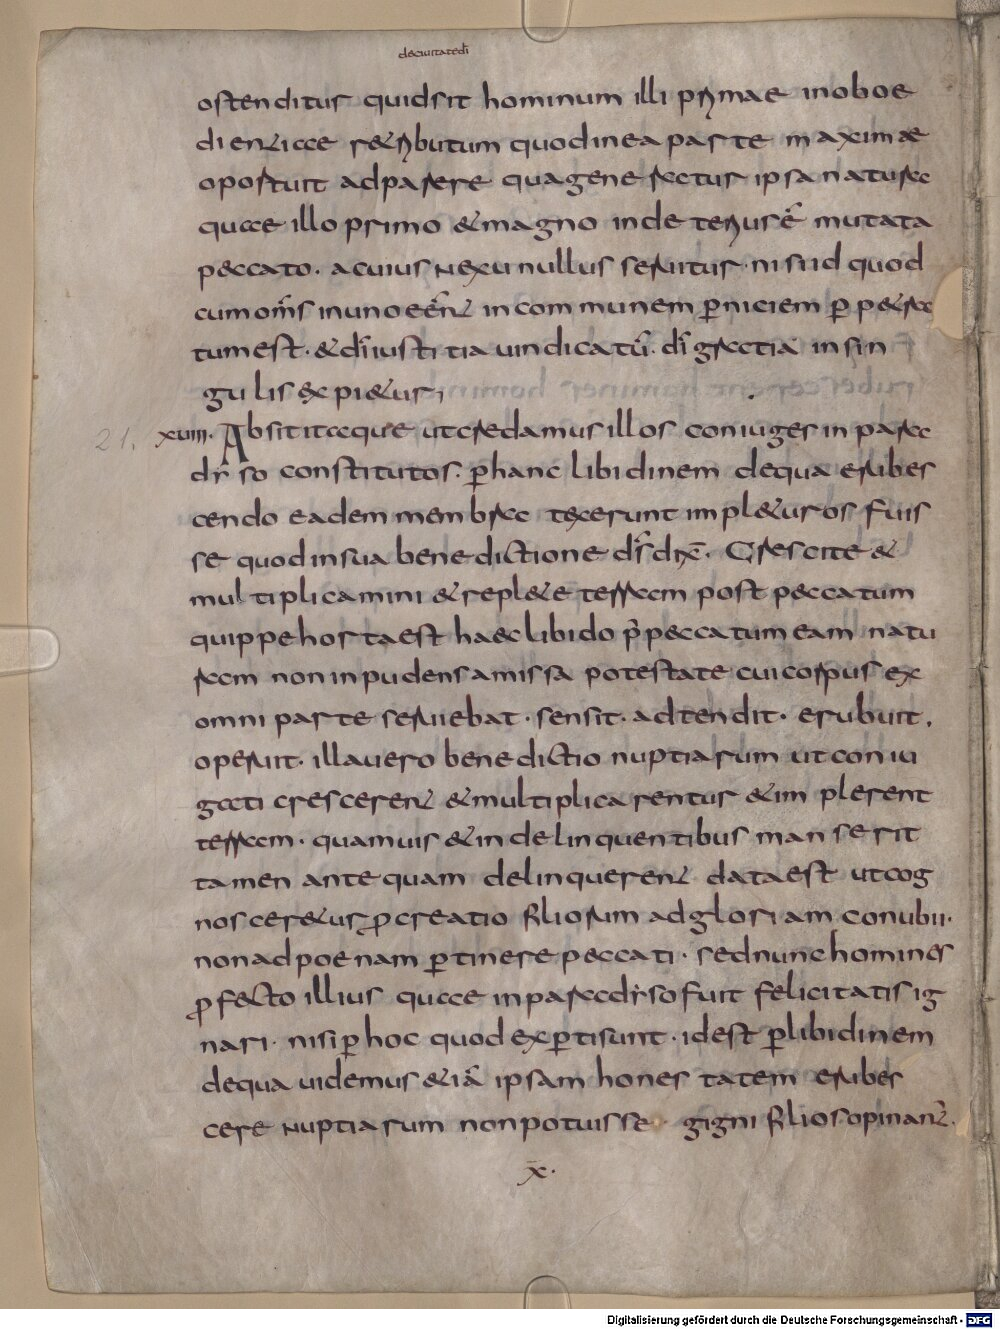 deciuitatedi
ostenditur quid sit hominum illi primae inoboe
dientiae retributum quod in ea parte maximae
oportuit ad parere qua generatur ipsa natura
quae illo primo & magno in deterius ē mutata
peccato. a cuius nexu nullus seruitur. nisi id quod
cum om̄s in uno eēnt in communem p̄niciem p̄petra
tum est. & dī iustitia uindicatū. dī gratia in sin
gulis expi&ur;
21. xuiii. Absit itaque ut credamus illos coniuges in para
dẏso constitutos. p̄ hanc libidinem de qua erubes
cendo eadem membra texerunt impl&uros fuis
se quod in sua benedictione dr̄s dix̄. Crescite &
multiplicamini & repl&e terram post peccatum
quippe horta est haec libido p̄ peccatum eam natu
ram non inpudens amissa potestate cui corpus ex
omni parte seruiebat. sensit. adtendit. erubuit.
operuit. illa uero benedictio nuptiarum ut coniu
gati crescerent & multiplicarentur & implerent
terram. quamuis & in delinquentibus manserit
tamen antequam delinquerent data est ut cog
nosceretur p̄creatio filiorum ad gloriam conubii.
non ad poenam p̄tinere peccati. sed nunc homines
p̄fecto illius quae in paradẏso fuit felicitatis ig
nari. nisi p̄ hoc quod exp̄ti sunt. id est p̄ libidinem
de qua uidemus &iā ipsam honestatem erubes
cere nuptiarum non potuisse. gigni filios opinant̄.
x̄.
Digitalisierung gefördert durch die Deutsche Forschungsgemeinschaft - DFG